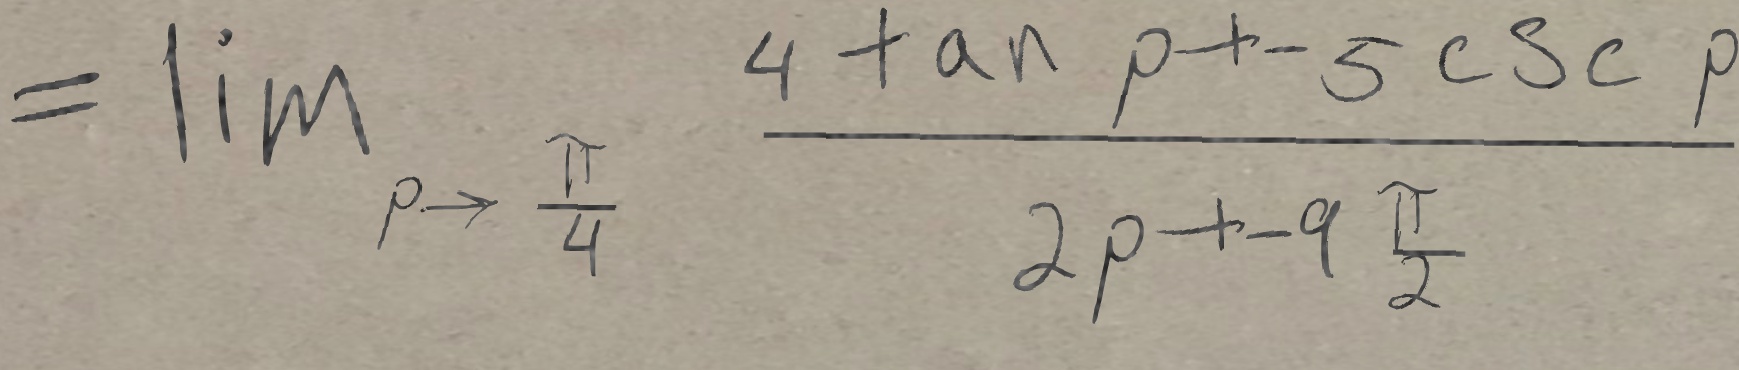 = \lim_{p \to \frac{\pi}{4}} \frac{4 \tan p + -5 \csc p}{2p + -9 \frac{\pi}{2}}